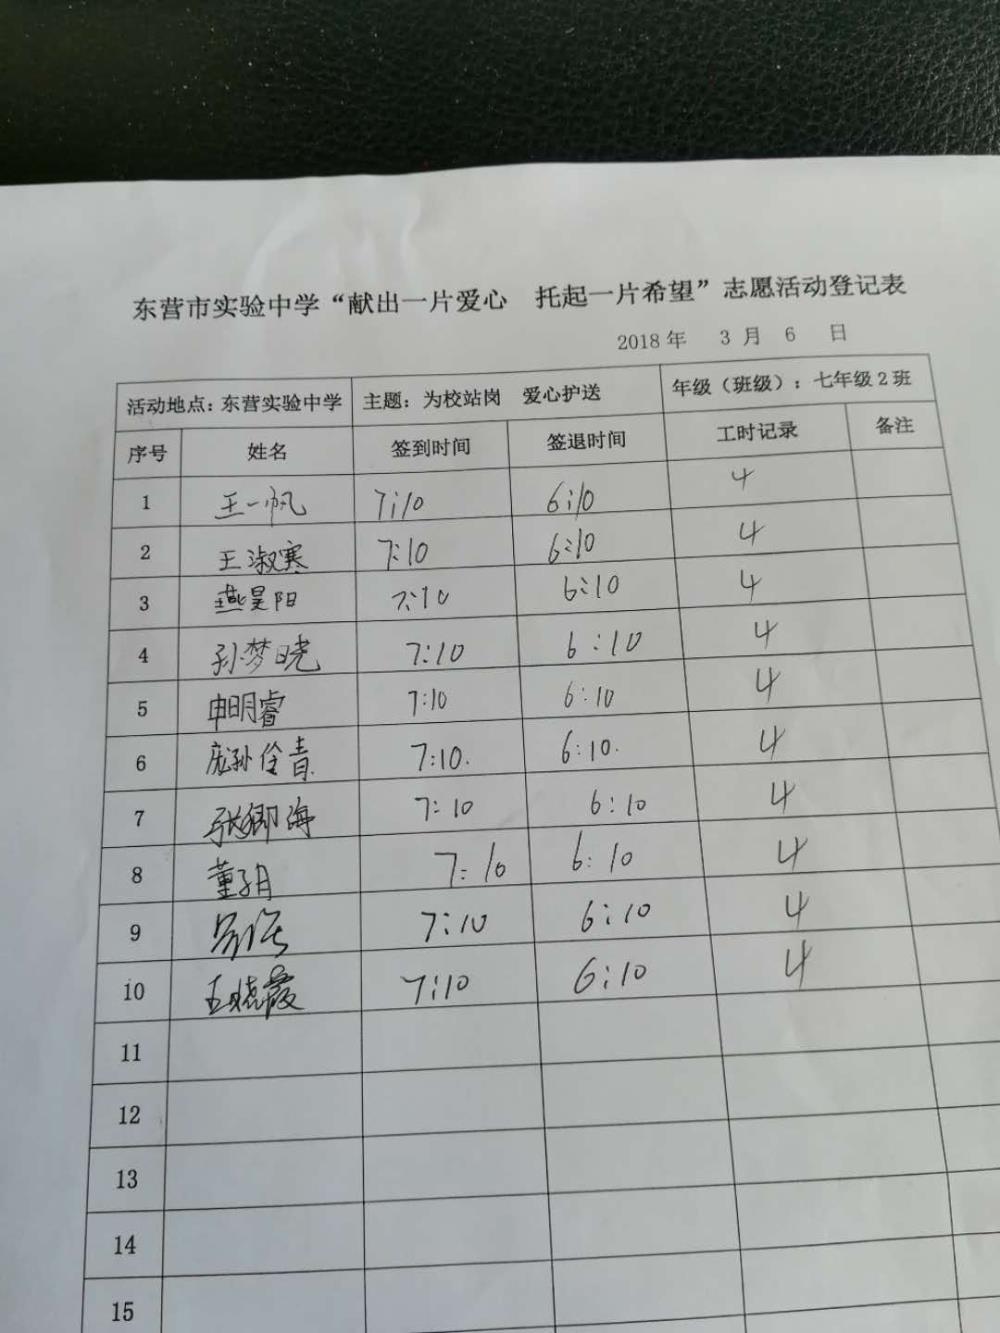 东营市实验中学“献出一片爱心 托起一片希望”志愿活动登记表
2018 年 3 月 6 日
活动地点：东营实验中学 主题：为校站岗 爱心护送 年级（班级）：七年级2班
序号 姓名 签到时间 签退时间 工时记录 备注
1 王一帆 7:10 6:10 4
2 王淑寒 7:10 6:10 4
3 燕昊阳 7:10 6:10 4
4 孙梦晓 7:10 6:10 4
5 申明睿 7:10 6:10 4
6 庞孙伶青 7:10. 6:10. 4
7 张卿海 7:10 6:10 4
8 董子月 7:10 6:10 4
9 7:10 6:10 4
10 王晓霞 7:10 6:10 4
11
12
13
14
15